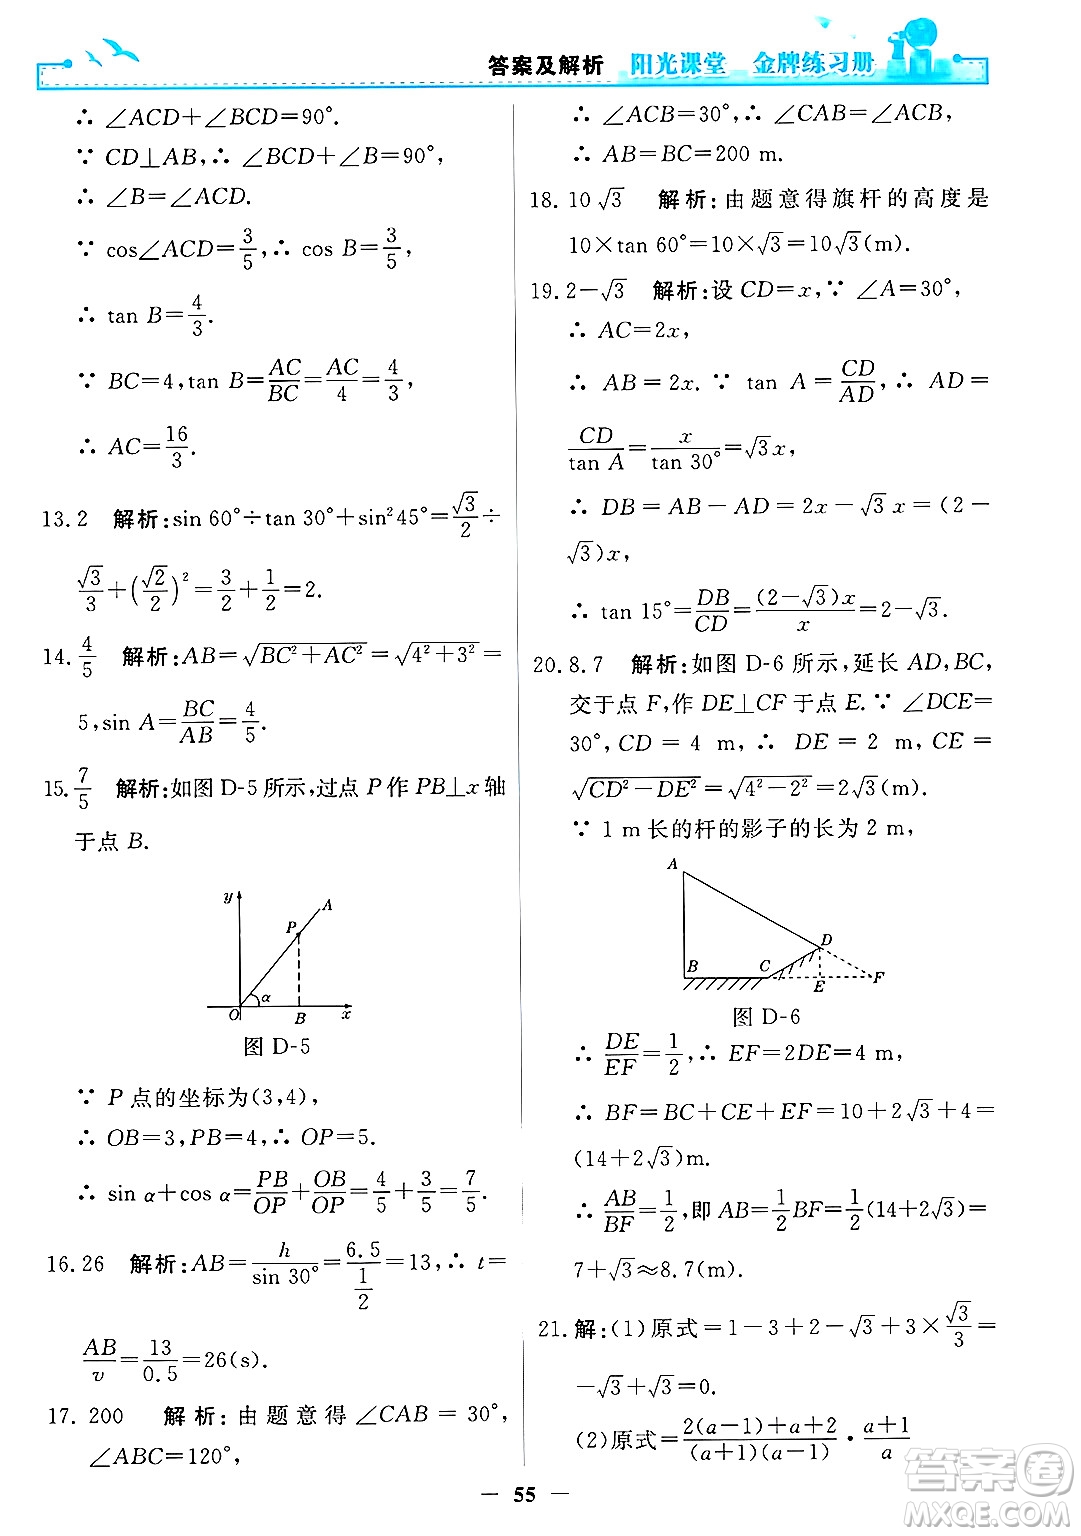 答案及解析 阳光课堂 金牌练习册
∴ ∠ACD+∠BCD=90°.
∵ CD⊥AB,∴ ∠BCD+∠B=90°,
∴ ∠B=∠ACD.
∵ cos∠ACD=3/5,∴ cos B=3/5,
∴ tan B=4/3.
∵ BC=4,tan B=AC/BC=AC/4=4/3,
∴ AC=16/3.
13.2 解析:sin 60°÷tan 30°+sin²45°=√3/2÷
√3/3+(√2/2)²=3/2+1/2=2.
14.4/5 解析:AB=√(BC²+AC²)=√(4²+3²)=
5,sin A=BC/AB=4/5.
15.7/5 解析:如图 D-5 所示,过点 P 作 PB⊥x 轴
于点 B.
y
A
P
α
O B x
图 D-5
∵ P 点的坐标为(3,4),
∴ OB=3,PB=4,∴ OP=5.
∴ sin α+cos α=PB/OP+OB/OP=4/5+3/5=7/5.
16.26 解析:AB=h/sin 30°=6.5/(1/2)=13,∴ t=
AB/v=13/0.5=26(s).
17. 200 解析:由题意得∠CAB=30°,
∠ABC=120°,
∴ ∠ACB=30°,∴ ∠CAB=∠ACB,
∴ AB=BC=200 m.
18.10√3 解析:由题意得旗杆的高度是
10×tan 60°=10×√3=10√3(m).
19.2-√3 解析:设 CD=x,∵ ∠A=30°,
∴ AC=2x,
∴ AB=2x.∵ tan A=CD/AD,∴ AD=
CD/tan A=x/tan 30°=√3x,
∴ DB=AB-AD=2x-√3x=(2-
√3)x,
∴ tan 15°=DB/CD=(2-√3)x/x=2-√3.
20.8.7 解析:如图 D-6 所示,延长 AD,BC,
交于点 F,作 DE⊥CF 于点 E.∵ ∠DCE=
30°,CD=4 m,∴ DE=2 m,CE=
√(CD²-DE²)=√(4²-2²)=2√3(m).
∵ 1 m 长的杆的影子的长为 2 m,
A
D
B C
E F
图 D-6
∴ DE/EF=1/2,∴ EF=2DE=4 m,
∴ BF=BC+CE+EF=10+2√3+4=
(14+2√3)m.
∴ AB/BF=1/2,即 AB=1/2BF=1/2(14+2√3)=
7+√3≈8.7(m).
21.解:(1)原式=1-3+2-√3+3×√3/3=
-√3+√3=0.
(2)原式=(2(a-1)+a+2)/((a+1)(a-1))·(a+1)/a
— 55 —
答案卷
MXQE.COM